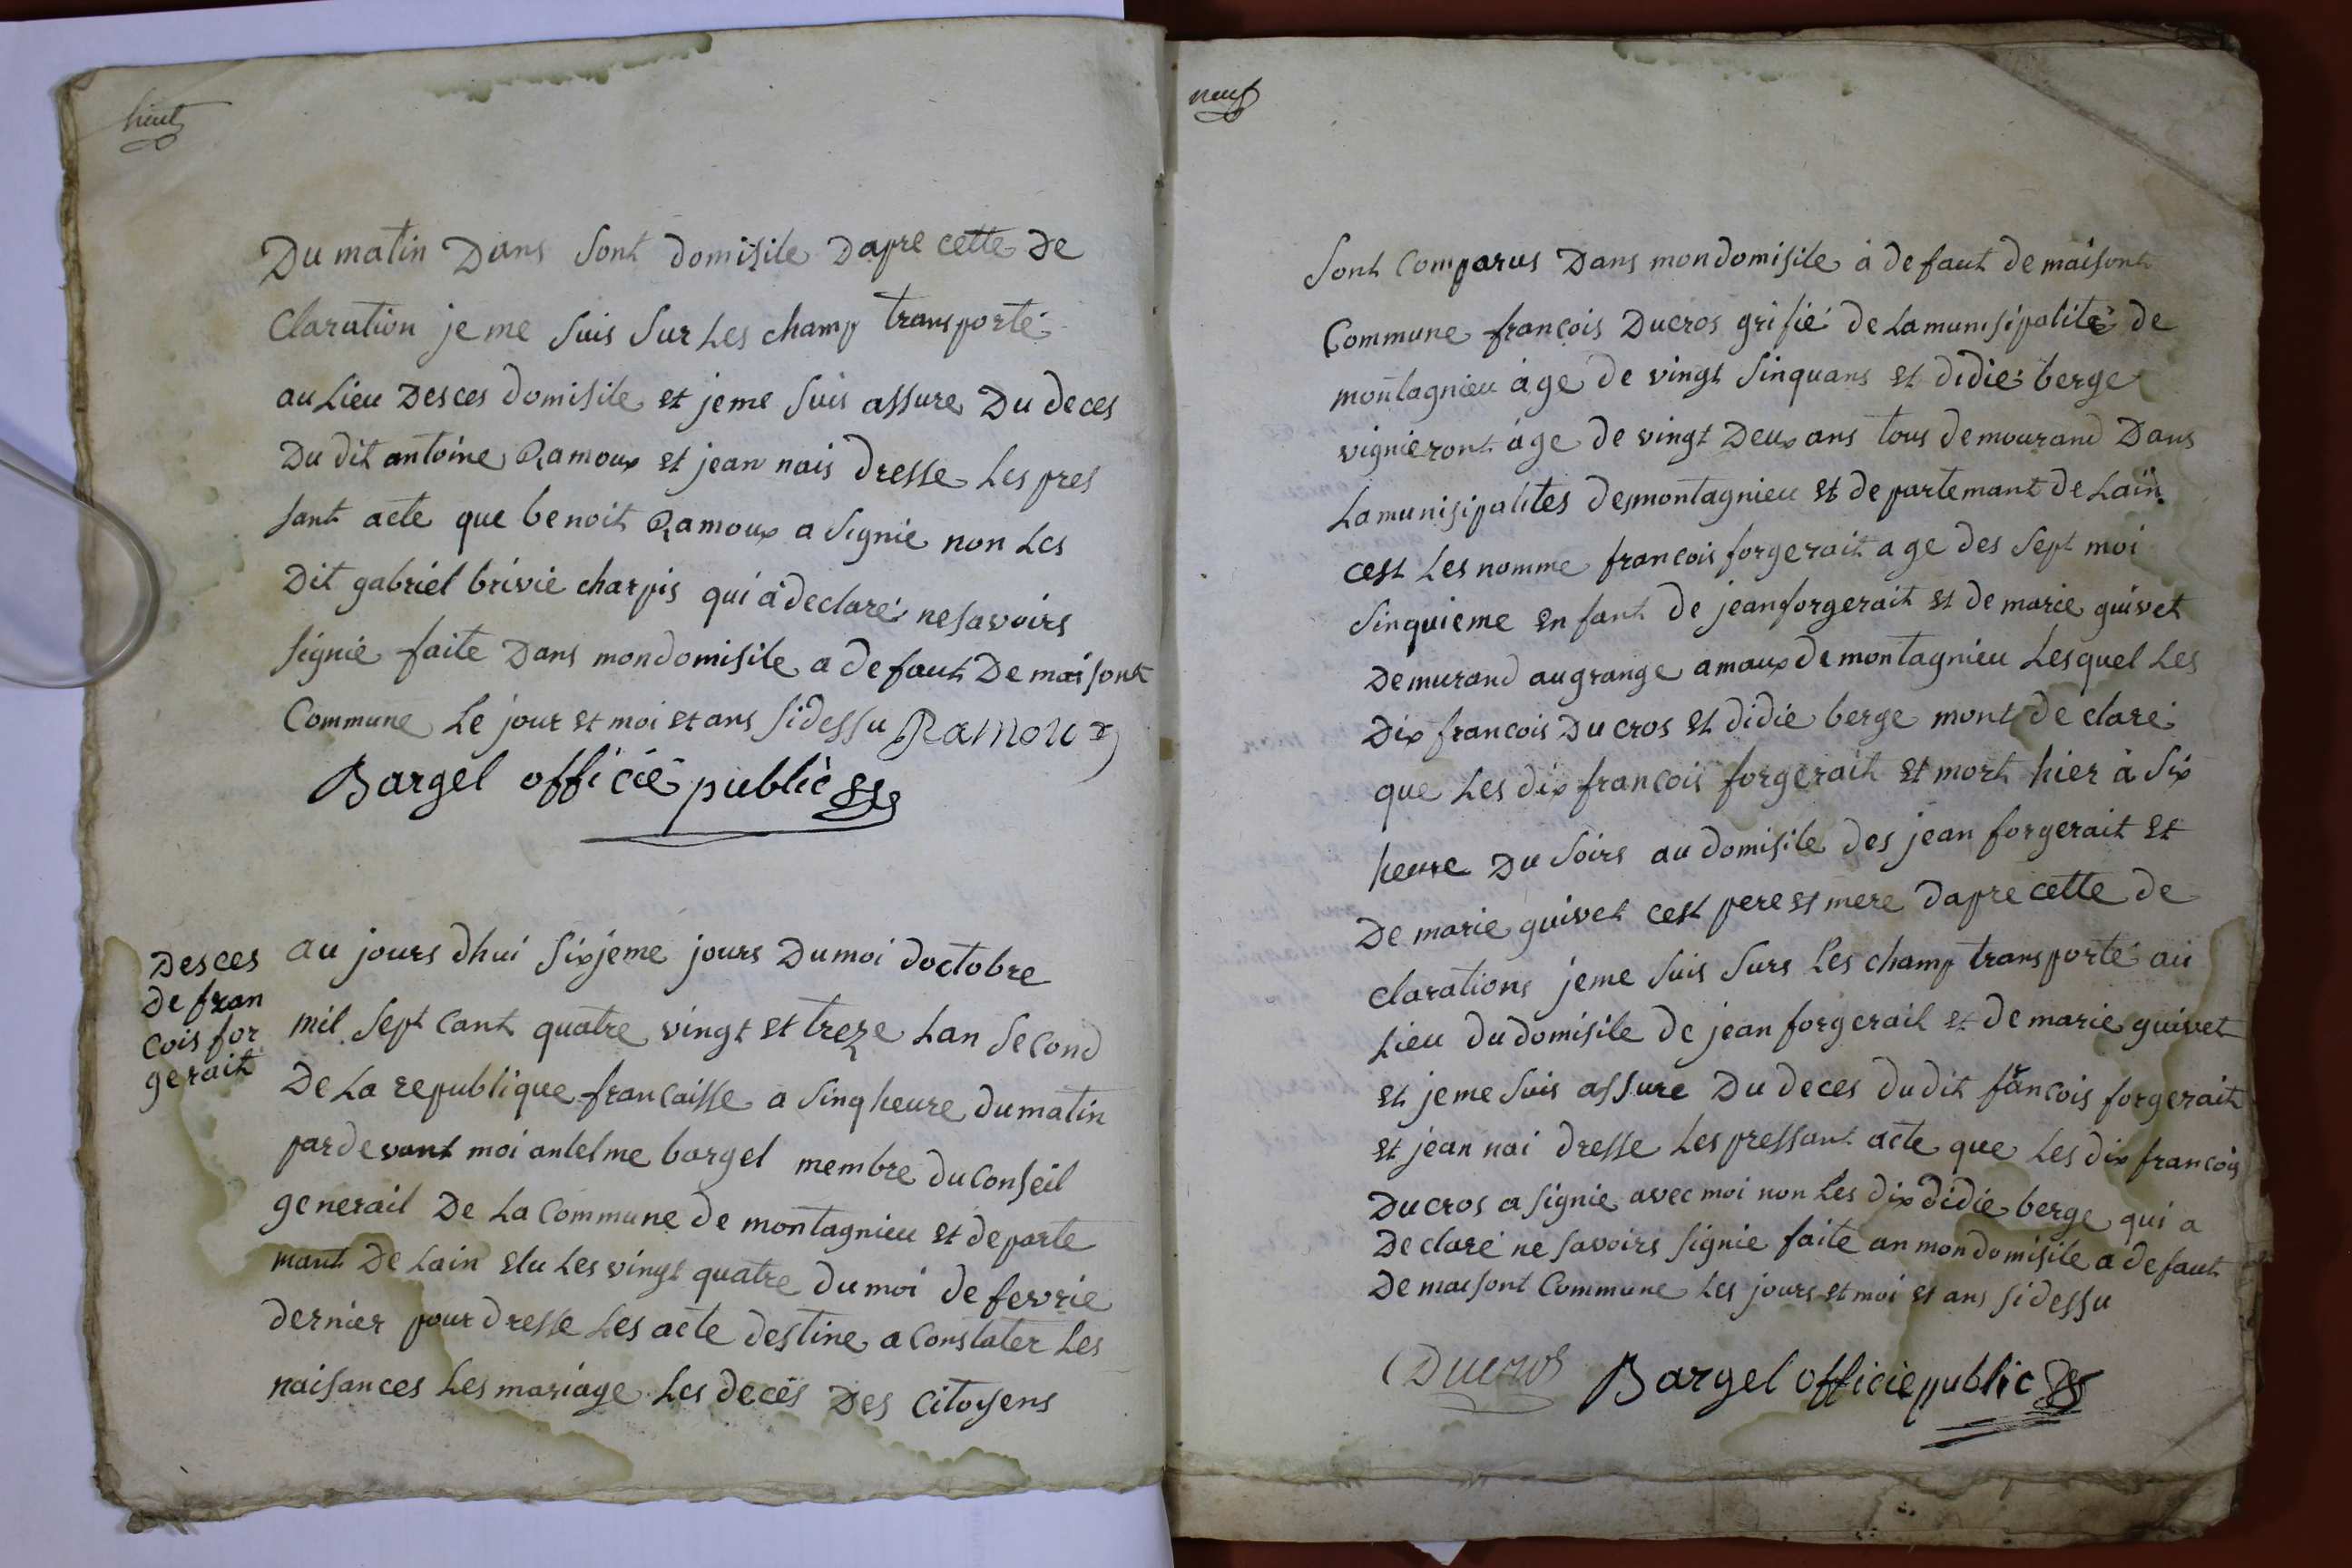 huit
Du matin Dans sont domisile Dapre cette De
Claration je me suis sur Les champ transporté
au Lieu Desces domisile et jeme suis assure Du deces
Du dit antoine Ramoux et jean nais dresse Les pres
sant acte que benoit Ramoux a signie non Les
Dit gabriel brivie charpis qui à declaré nesavoirs
signie faite Dans mondomisile a defaut De maisont
Commune Le jour et moi et ans sidessu Ramoux
Bargel officié public
Desces
de fran
cois for
gerait
au jours dhui sixjeme jours Dumoi doctobre
mil sept cant quatre vingt et treze Lan second
De La republique francaisse a sinq heure dumatin
pardevant moi antelme bargel membre duconseil
generail De La Commune de montagnieu et departe
mant De Lain elu Les vingt quatre dumoi de fevrie
dernier pour dresse Les acte destine a constater Les
naisances Les mariage Les decés Des Citoyens
neuf
sont comparus Dans mondomisile à defaut de maisont
Commune françois Ducros grifié de Lamunisipalité de
montagnieu àge de vingt sinquans et didié berge
vignieront àge de vingt Deux ans tous demourand Dans
Lamunisipalites desmontagnieu et departemant de Lain
cest Les nomme francois forgerait age des sept moi
sinquieme enfant de jeanforgerait et de marie guivet
Demurand augrange amaux de montagnieu Lesquel Les
Dix francois Ducros et didie berge mont de claré
que Les dix francois forgerait et mort hier à six
heure Du soirs au domisile des jean forgerait et
De marie guivet cest pere et mere dapre cette de
clarations jeme suis surs Les champ transporté au
Lieu du domisile de jean forgerait et de marie guivet
et jeme suis assure Du deces dudit francois forgerait
et jean nai dresse Les pressant acte que Les dix francois
Ducros a signie avec moi non Les dix didie berge qui a
De claré ne savoirs signie faite an mon domisile a defaut
De maisont Commune Les jours et moi et ans sidessu
Ducros Bargel officie public